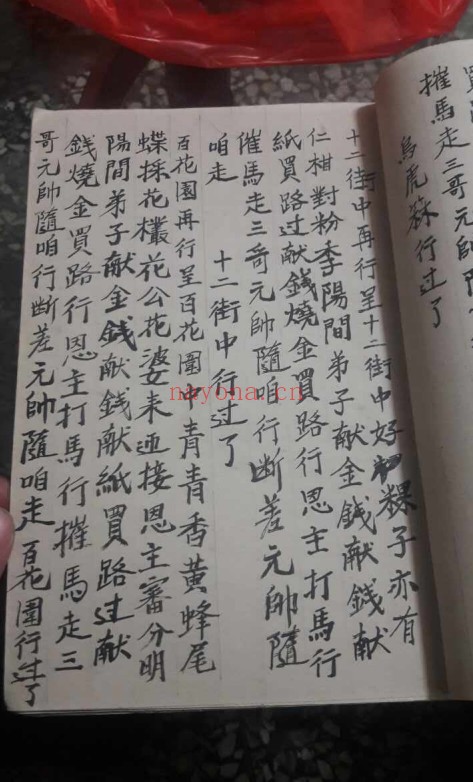 摧馬走三哥元帥隨
烏虎蘇行过了
十二街中再行呈十二街中好粿子亦有
仁柑對粉季陽間弟子献金銭献銭献
紙買路过献銭燒金買路行恩主打馬行
催馬走三哥元帥隨咱行断差元帥隨
咱走 十二街中行过了
百花園再行呈百花園中青青香黄蜂尾
蝶採花欉花公花婆来迎接恩主審分明
陽間弟子献金銭献銭献紙買路过献
銭燒金買路行恩主打馬行摧馬走三
哥元帥隨咱行断差元帥隨咱走百花園行过了
nayoha.cn